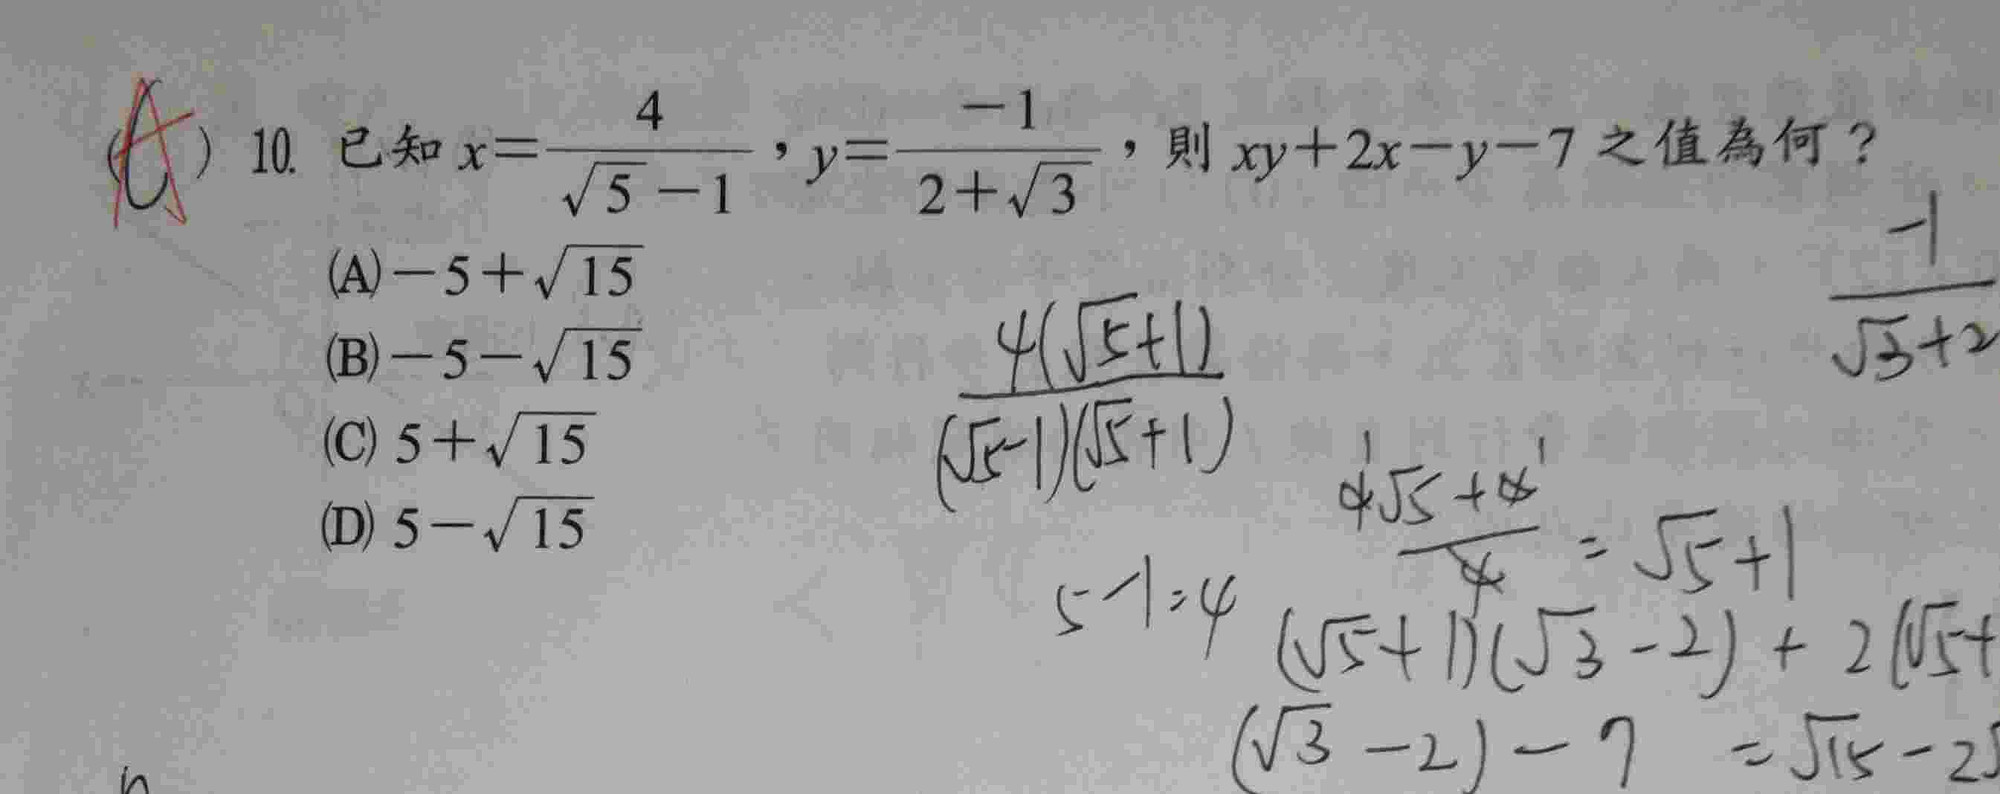 ( A ) 10. 已知 x=4/(√5−1)，y=−1/(2+√3)，則 xy+2x−y−7 之值為何？
(A)−5+√15
(B)−5−√15
(C) 5+√15
(D) 5−√15
−1/(√3+2
4(√5+1)/(√5-1)(√5+1)
4√5+4/4 = √5+1
5-1=4
(√5+1)(√3-2) + 2(√5+
(√3-2)-7 = √15-2√